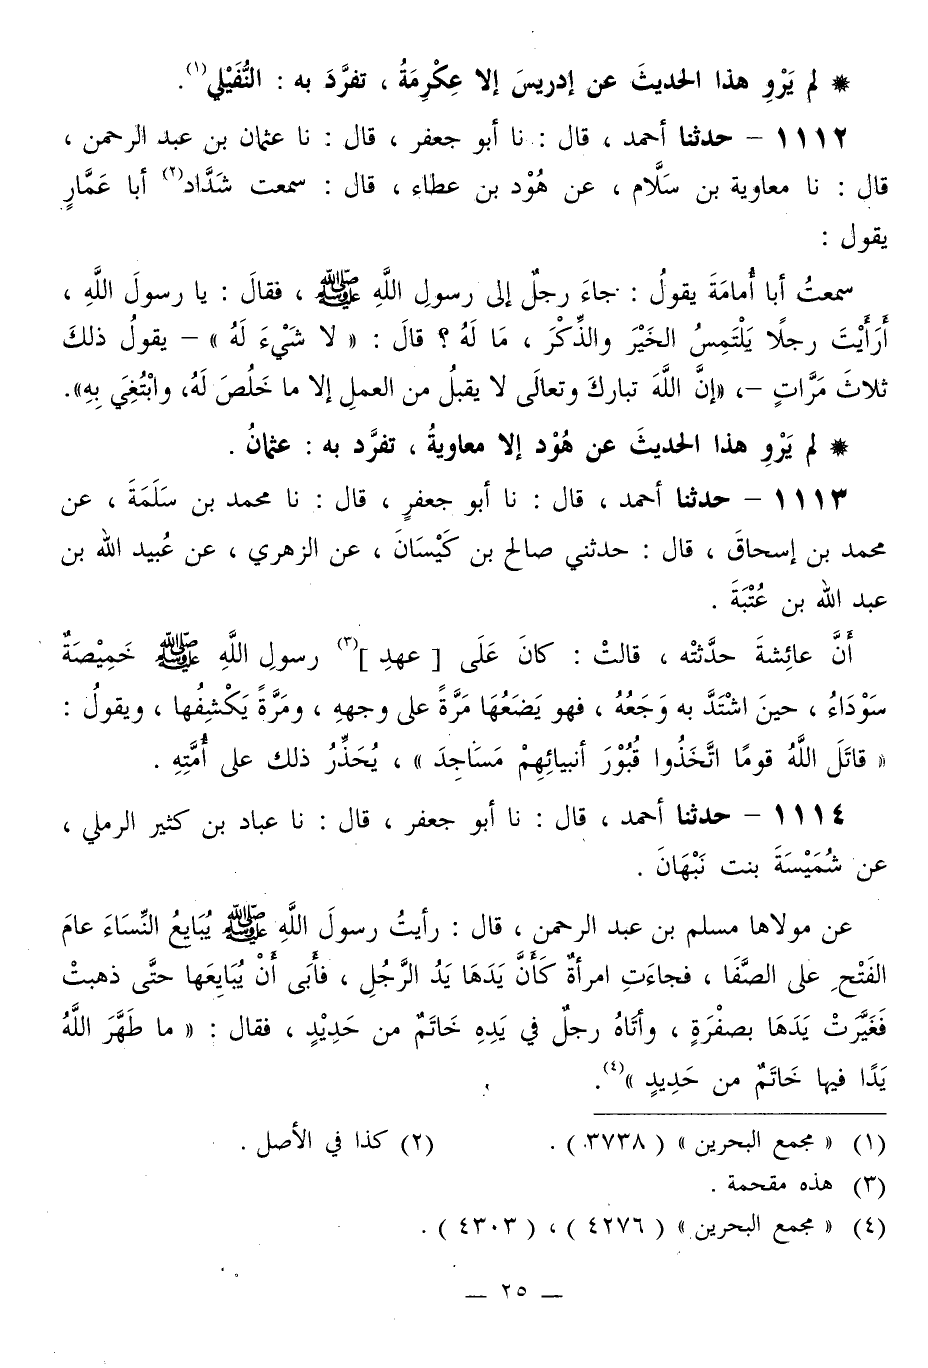 * لم يَرْوِ هذا الحديثَ عن إدريسَ إلا عِكْرِمَةُ ، تفرَّدَ به : النُّفَيْلي(١).
١١١٢ – حدثنا أحمد ، قال : نا أبو جعفر ، قال : نا عثمان بن عبد الرحمن ،
قال : نا معاوية بن سَلَّام ، عن هُوْد بن عطاء ، قال : سمعت شَدَّاد(٢) أبا عَمَّارٍ
يقول :
سمعتُ أبا أُمامَةَ يقولُ : جاءَ رجلٌ إلى رسولِ اللَّهِ ﷺ ، فقالَ : يا رسولَ اللَّهِ ،
أَرَأَيْتَ رجلًا يَلْتَمِسُ الخَيْرَ والذِّكْرَ ، مَا لَهُ ؟ قالَ : « لا شَيْءَ لَهُ » – يقولُ ذلكَ
ثلاثَ مَرَّاتٍ –، «إنَّ اللَّهَ تباركَ وتعالَى لا يقبلُ من العملِ إلا ما خَلُصَ لَهُ، وابْتُغِيَ بِهِ».
* لم يَرْوِ هذا الحديثَ عن هُوْد إلا معاويةُ ، تفرَّد به : عثمانُ .
١١١٣ – حدثنا أحمد ، قال : نا أبو جعفرٍ ، قال : نا محمد بن سَلَمَةَ ، عن
محمد بن إسحاقَ ، قال : حدثني صالح بن كَيْسَانَ ، عن الزهري ، عن عُبيد الله بن
عبد الله بن عُتْبَةَ .
أَنَّ عائِشةَ حدَّثتْه ، قالتْ : كانَ عَلَى [ عهدِ ](٣) رسولِ اللَّهِ ﷺ خَمِيْصَةٌ
سَوْدَاءُ ، حينَ اشْتَدَّ به وَجَعُهُ ، فهو يَضَعُهَا مَرَّةً على وجههِ ، ومَرَّةً يَكْشِفُها ، ويقولُ :
« قاتَلَ اللَّهُ قومًا اتَّخَذُوا قُبُوْرَ أنبيائِهِمْ مَسَاجِدَ » ، يُحَذِّرُ ذلك على أُمَّتِهِ .
١١١٤ – حدثنا أحمد ، قال : نا أبو جعفر ، قال : نا عباد بن كثير الرملي ،
عن شُمَيْسَةَ بنت نَبْهَانَ .
عن مولاها مسلم بن عبد الرحمن ، قال : رأيتُ رسولَ اللَّهِ ﷺ يُبَايعُ النِّسَاءَ عامَ
الفَتْحِ على الصَّفَا ، فجاءَتِ امرأةٌ كَأَنَّ يَدَهَا يَدُ الرَّجُلِ ، فأَبَى أَنْ يُبَايِعَها حتَّى ذهبتْ
فَغَيَّرَتْ يَدَهَا بصفْرَةٍ ، وأتَاهُ رجلٌ في يَدِهِ خَاتَمٌ من حَدِيْدٍ ، فقال : « ما طَهَّرَ اللَّهُ
يَدًا فيها خَاتَمٌ من حَدِيدٍ »(٤).
(١) « مجمع البحرين » ( ٣٧٣٨ ) . (٢) كذا في الأصل .
(٣) هذه مقحمة .
(٤) « مجمع البحرين » ( ٤٢٧٦ ) ، ( ٤٣٠٣ ) .
— ٢٥ —